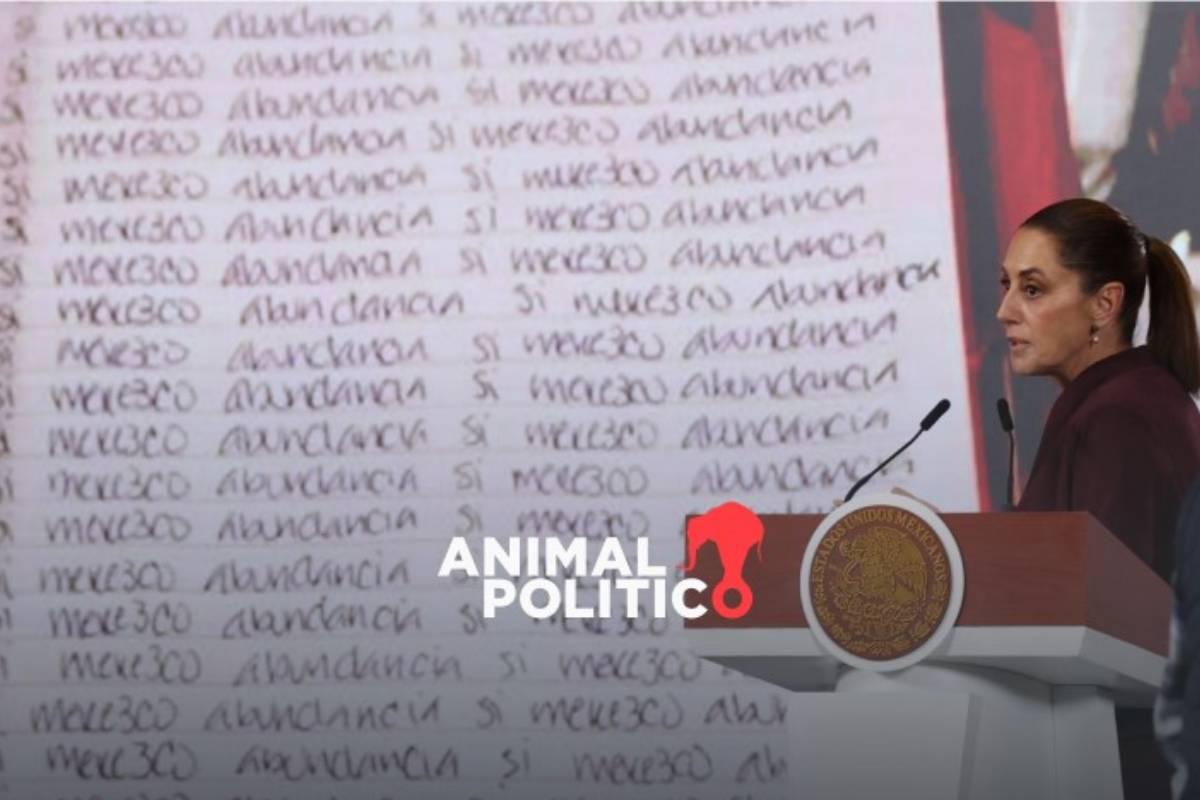 si merezco abundancia si merezco abundancia
si mere3co abundancia si mere3co abundancia
si mere3co abundancia si mere3co abundancia
si mere3co abundancia si mere3co abundancia
si mere3co abundancia si mere3co abundancia
si mere3co abundancia si mere3co abundancia
si mere3co abundancia si mere3co abundancia
si mere3co abundancia si mere3co abundancia
mere3co abundancia si mere3co abundancia
si mere3co abundancia si mere3co abundancia
mere3co abundancia si mere3co abundancia
si mere3co abundancia si mere3co abundancia
mere3co abundancia si mere3co
mere3co abundancia
mere3co abundancia si mere3co
mere3co abundancia si mere3co
mere3co abundancia si mere3co abun
mere3co abundancia si mere3co ab
ANIMAL
POLITICO
ESTADOS UNIDOS MEXICANOS